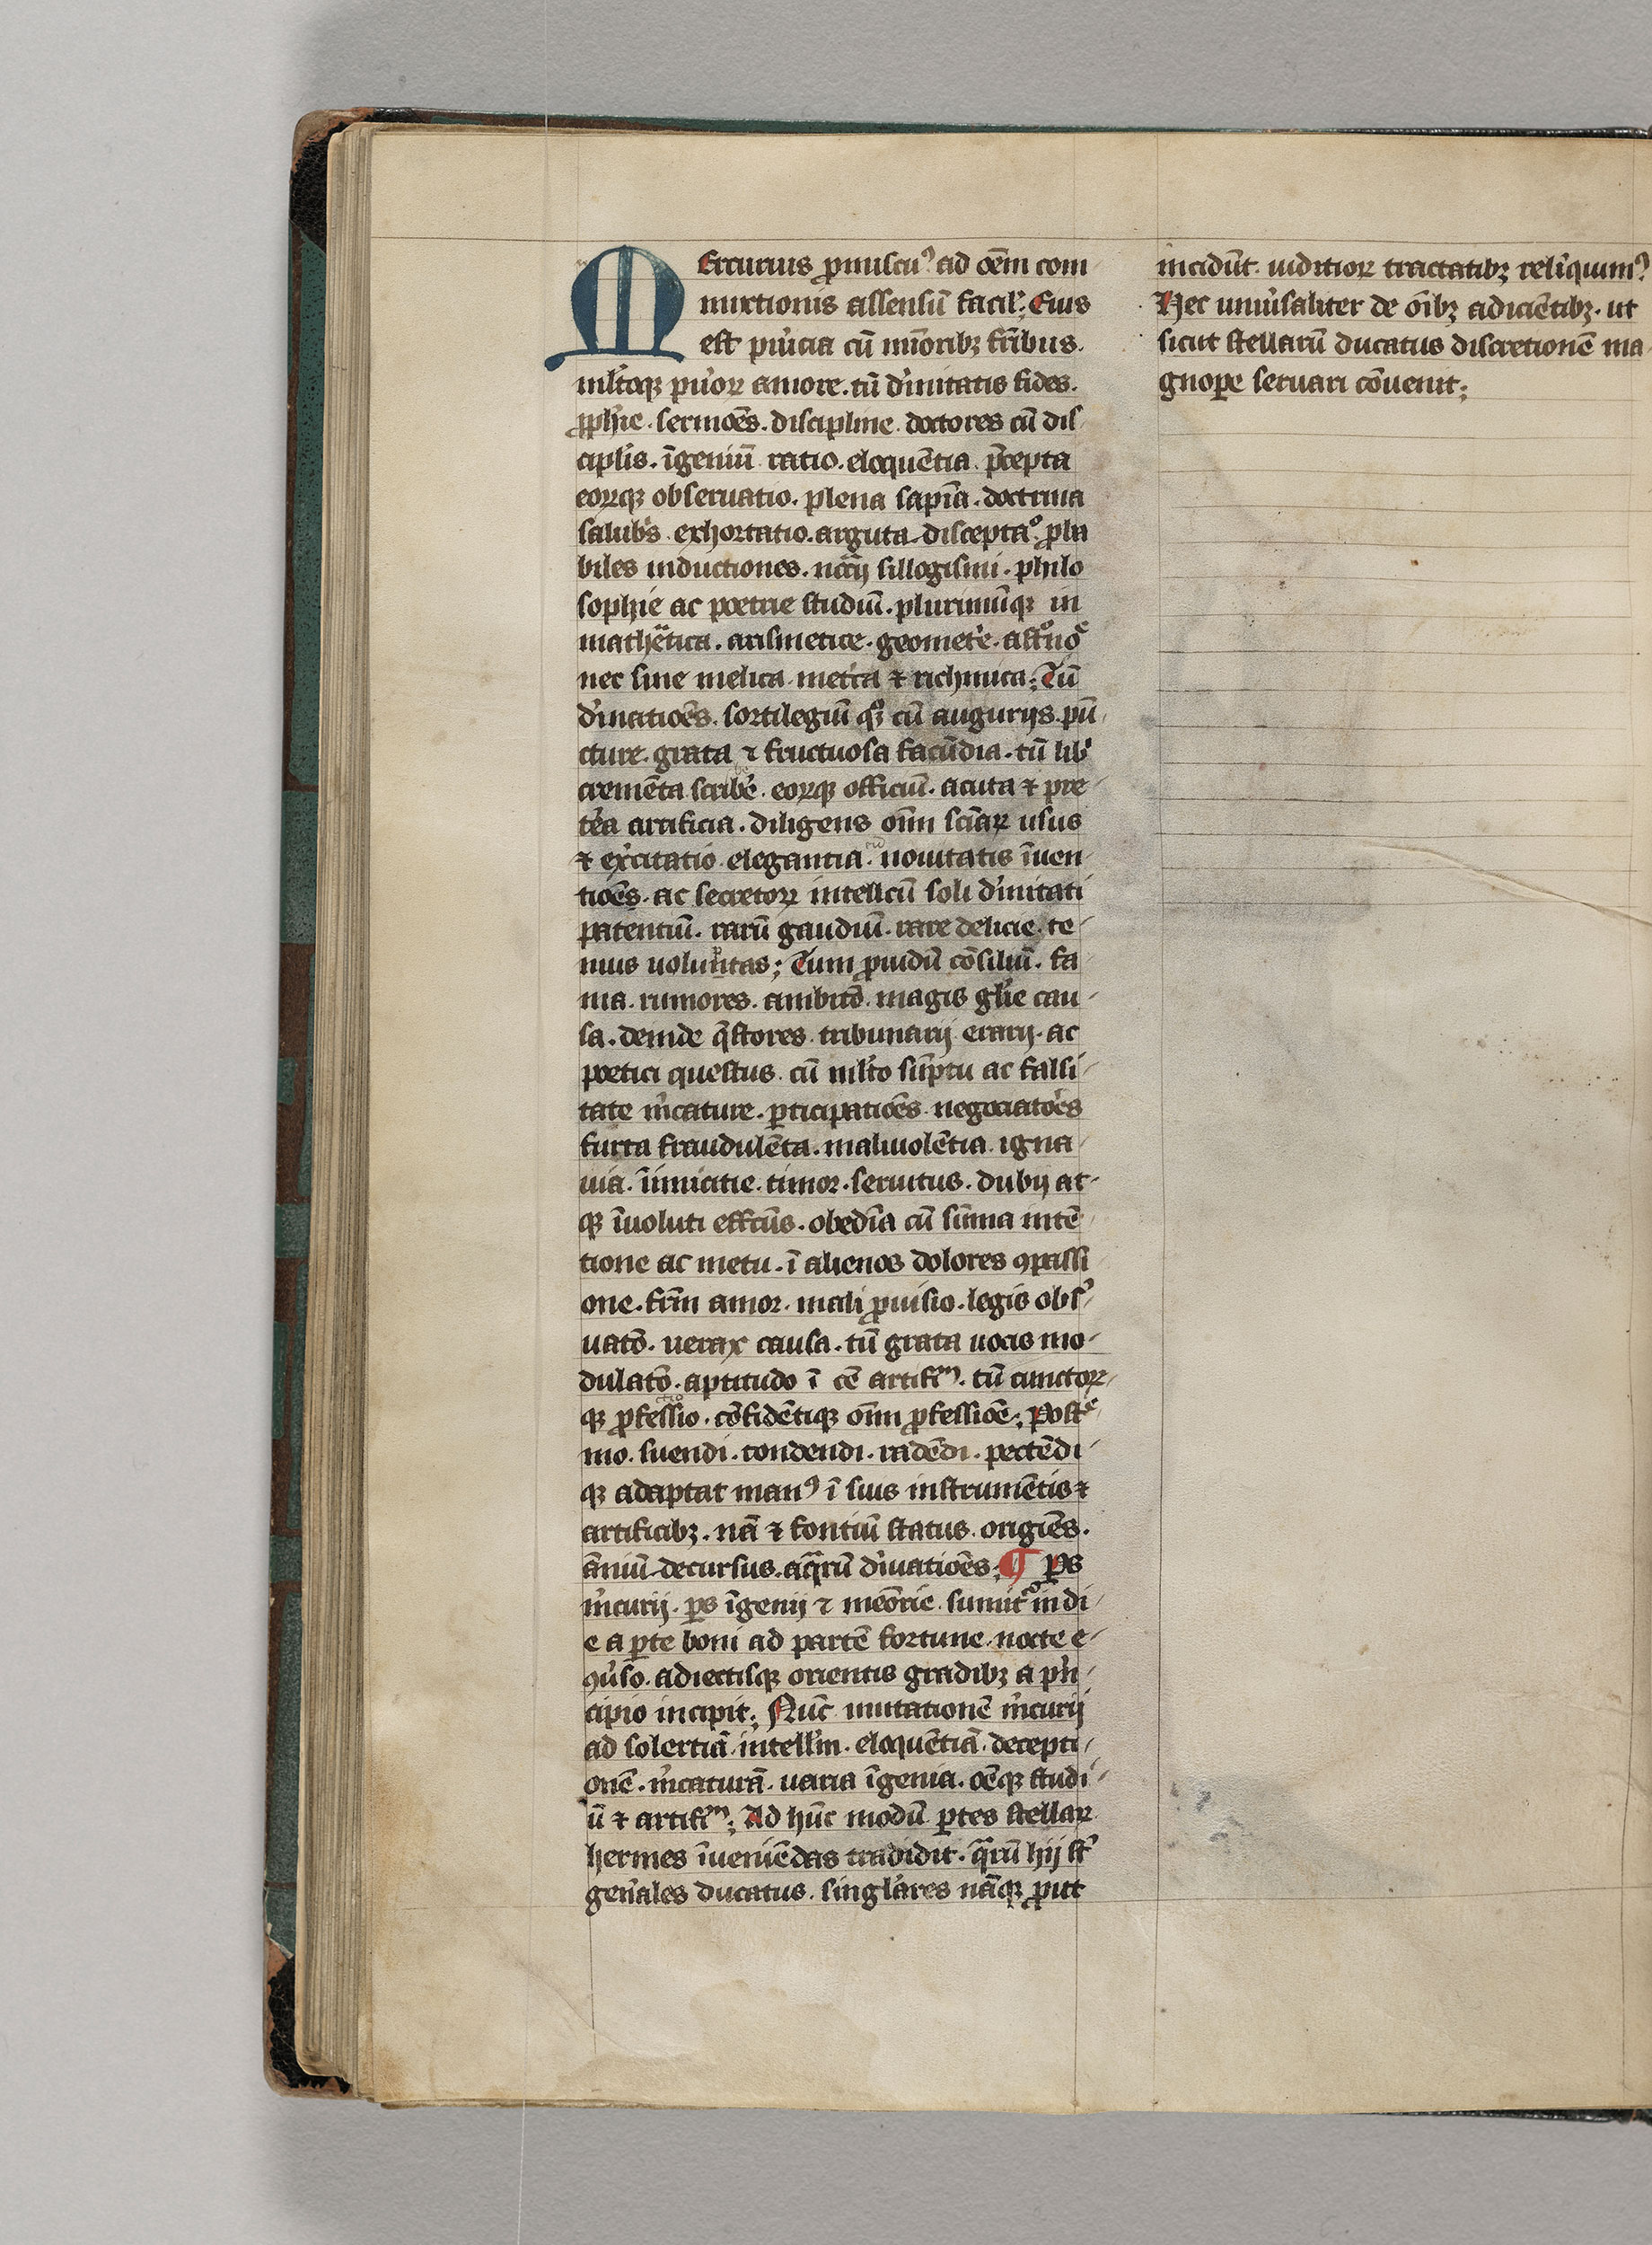 Mercurius ꝓmiscuꝰ ad oēm com
mixtionis assensū facilˀ; Eius
est puˀicia cū miōribꝫ fr̄ibus.
mltˀoqꝫ puˀoꝝ amore. tū dˀinitatis fides.
ꝓphīe. sermōes. discipline. doctores cū dis
ciplis. īgeniū ratio. eloquētia. p̄cepta
eoꝝqꝫ obseruatio. plena sapīa. doctrina
salubˀs exhortatio. arguta disceptaᵒ. ꝓba
biles inductiones. nc̄cˀij sillogismi. philo
sophie ac poetrie studiū. plurimūqꝫ in
mathēᵃtica. arismetice. geometˀe. astᵒnoᵉ
nec sine melica metˀca ⁊ richmica; Tū
dˀinatiōes. sortilegiū qᵒꝫ cū augurijs. pū
cture. grata ⁊ fructuosa facūdia. tū libˀ
crementa scribe. eoꝝqꝫ officiū. acuta ⁊ pre
tˀea artificia. diligens oīm sciaꝝ usus
⁊ exˀcitatio elegantia. nouitatis īuen
tiōes. ac secretoꝝ intellcū soli dˀinitati
patentiū. rarū gaudiū. rare delicie. te
nuis uoluntas; Tum ꝓuidū cōsiliū. fa
ma. rumores. ambitō. magis glˀie cau
sa. deinde q̄stores tribunarij erarij. ac
poetici questus. cū mltˀo sūptu ac falsi
tate mˀcature. ꝑticipatiōes negociatōes
furta fraudulēta. maliuolētia. igna
uia. īimicitie. timor. seruitus. dubij at
qꝫ īuoluti effcūs. obedīa cū sūma intē
tione ac metu. ī alienos dolores ꝯpassi
one. fr̄m amor. mali ꝓuisio. legis obsˀ
uatō. uerax causa. tū grata uocis mo
dulatō. aptitudo ī oē artifⁱᵐ. tū cunctoꝝ
qꝫ ꝓfessio. cōfidētiqꝫ oīm ꝓfessiōe; Postᵉ
mo. suendi. tondendi. radēdi. pectēdi
qꝫ adaptat manꝰ ī suis instrumētis ⁊
artificibꝫ. nā ⁊ fontiū status. origiēs.
āniū decursus. aq̄rū dˀiuatiōes; ¶ ꝑs
mˀcurij. ꝑs īgenij ⁊ meōrie. sumitᵒ in di
e a ꝑte boni ad partē fortune. nocte e
ꝯuˀso. adiectisqꝫ orientis gradibꝫ a pˀn
cipio incipit; Nūc mutationē mˀcurij
ad solertiā. intellˀm. eloquētiā. decepti
onē. mˀcaturā. uaria īgenia. oēqꝫ studi
ū ⁊ artifⁱᵐ; Ad hūc modū ꝑtes stellaꝝ
hermes īueniēdas tradidit. q̄rū hij stˀ
genˀales ducatus. singlˀares nāqꝫ ꝓut
incidūt. iuditioꝝ tractatibꝫ relīquimꝰ
Nec uniuˀsaliter de oībꝫ adiciētibꝫ. ut
sicut stellarū ducatus discretionē ma
gnope seruari cōuenit;